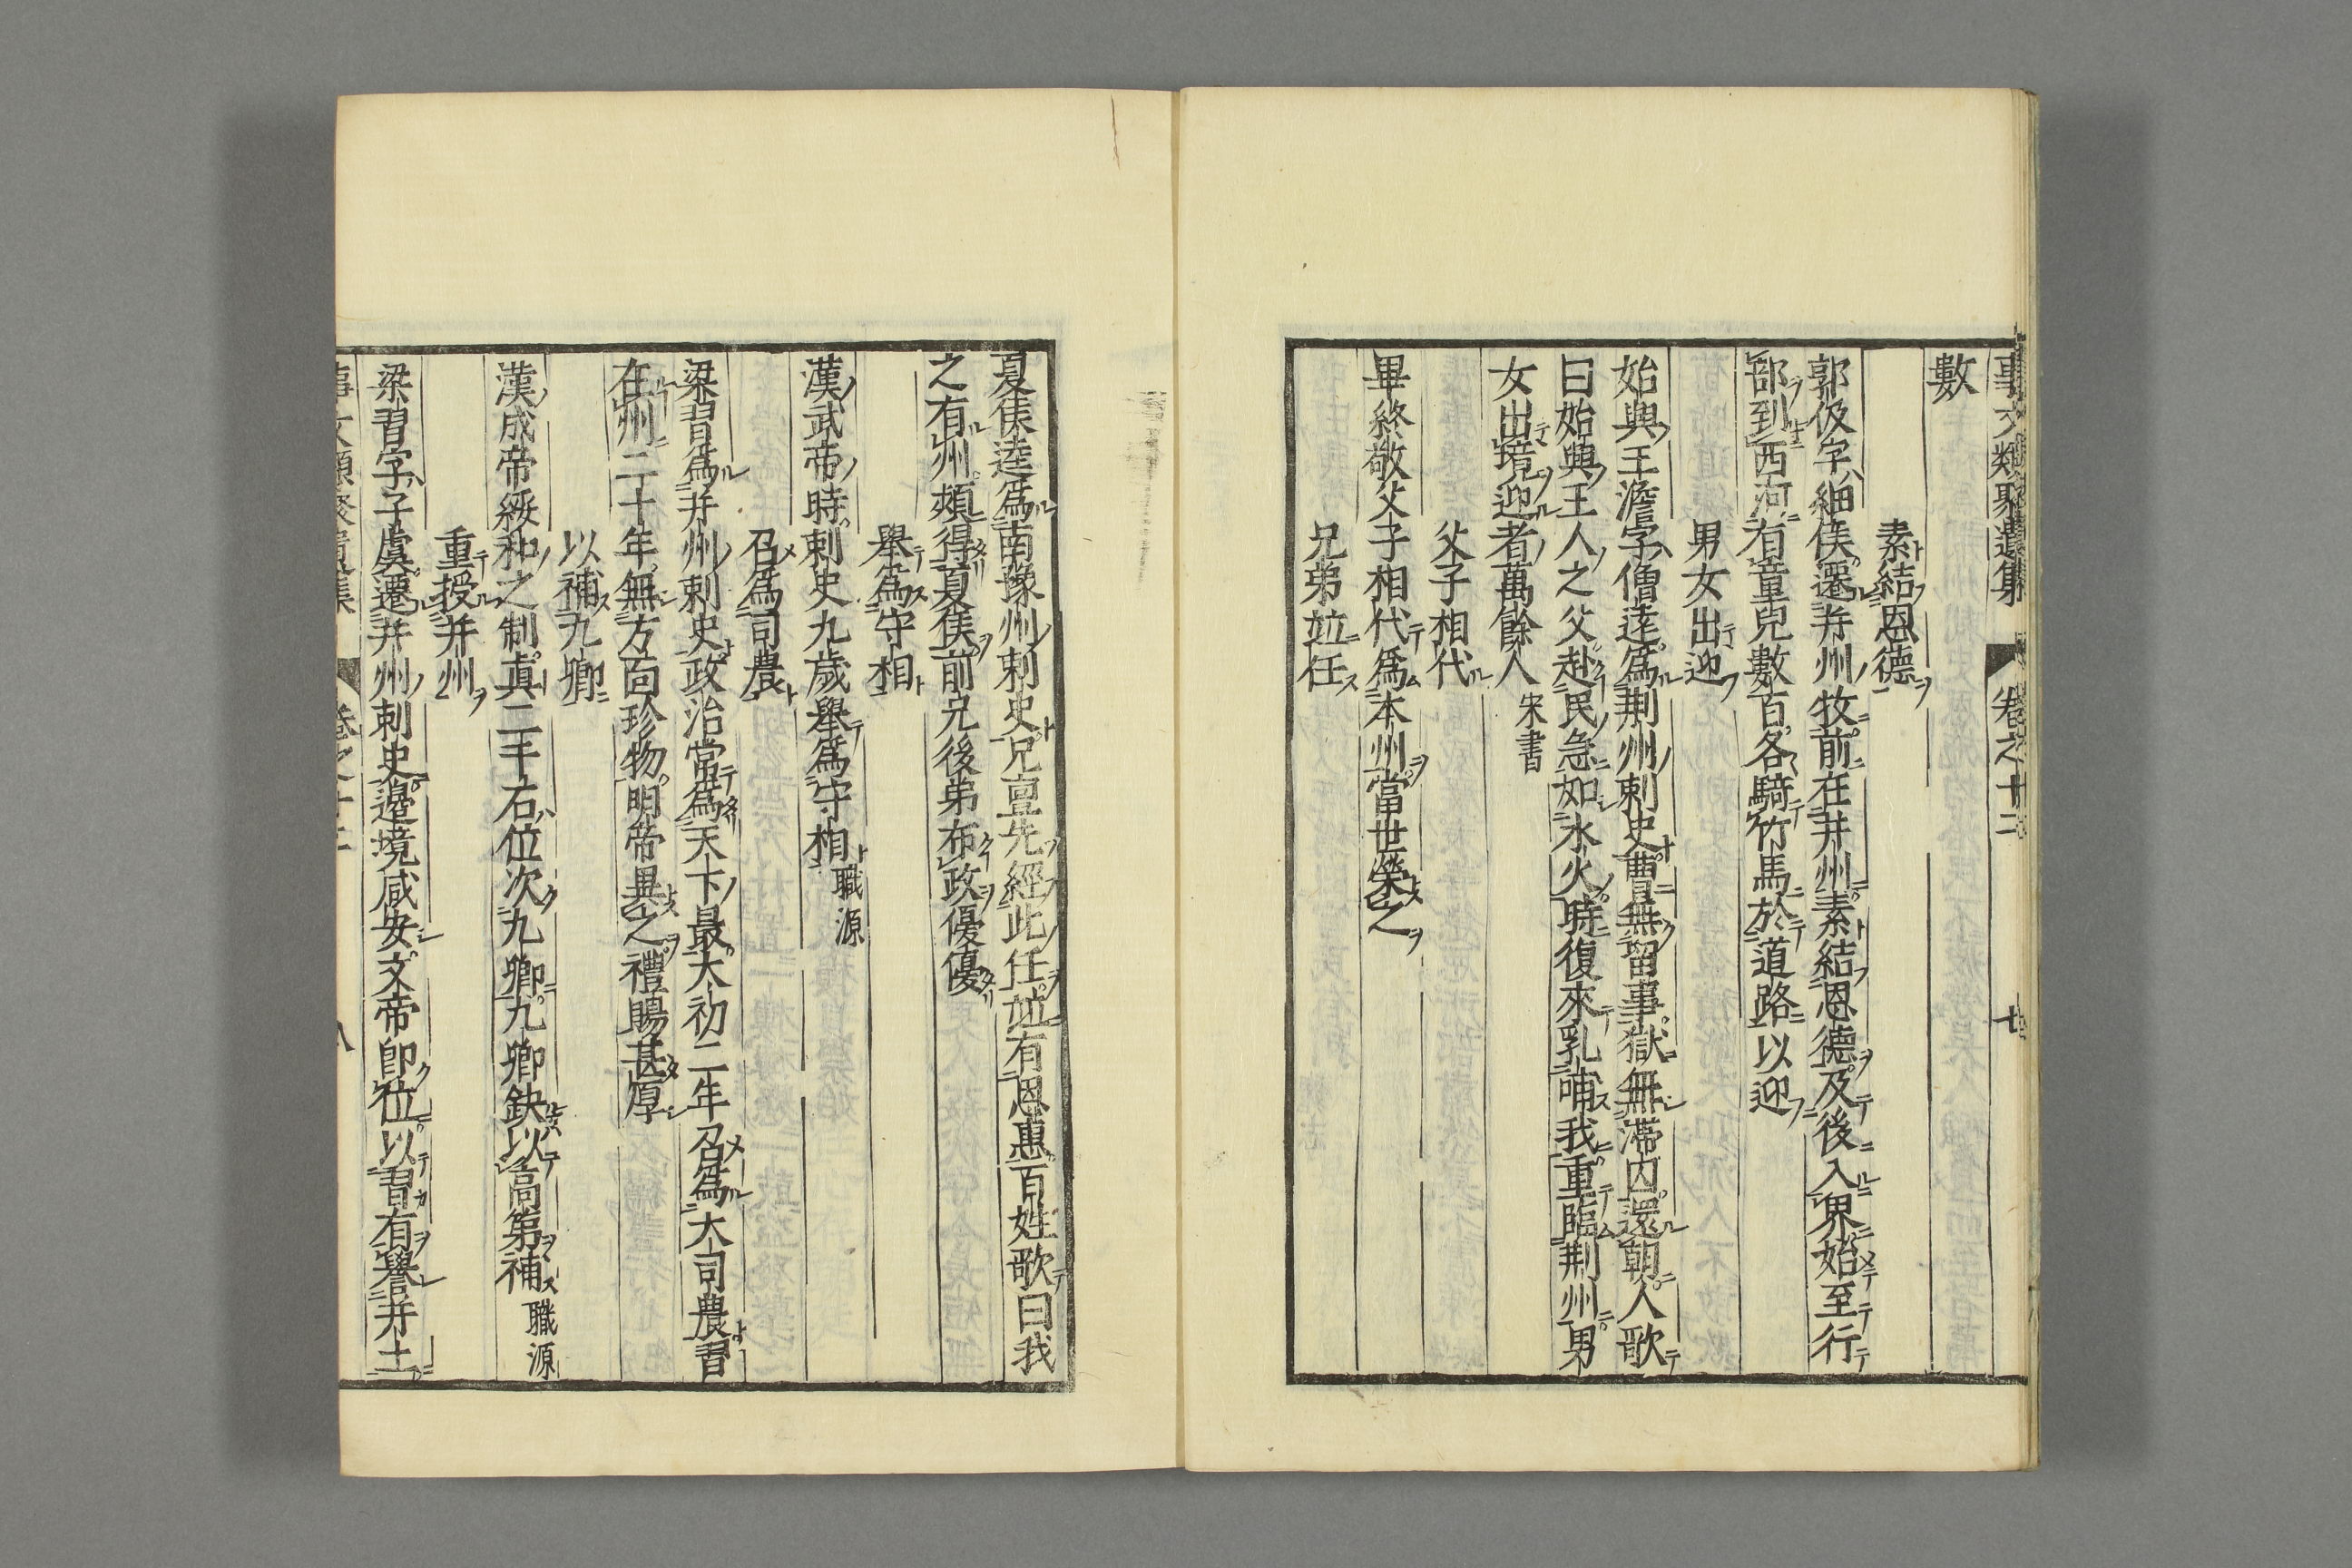 事文類聚遺集 卷之十二 七
數
素結恩德
郭伋字細侯遷并州牧前在并州素結恩德及後入界始至行
部到西河有童兒數百各騎竹馬於道路以迎
男女出迎
始興王澹字僧達爲荆州刺史曹無留事獄無滯囚還朝人歌
曰始興王人之父赴民急如水火時復來乳哺我重臨荆州男
女出境迎者萬餘人 宋書
父子相代
畢終敬父子相代爲本州當世榮之
兄弟並任
夏侯逵爲南豫州刺史兄亶先經此任並有恩惠百姓歌曰我
之有州頻得夏侯前兄後弟布政優優
舉爲守相
漢武帝時刺史九歲舉爲守相 職源
召爲司農
梁習爲并州刺史政治常爲天下最大初二年召爲大司農習
在州二十年無方面珍物明帝異之禮賜甚厚
以補九卿
漢成帝綏和之制眞二千石位次九卿九卿缺以高第補 職源
重授并州
梁習字子虞遷并州刺史邊境咸安文帝卽位以習有譽并土
事文類聚遺集 卷之十二 八